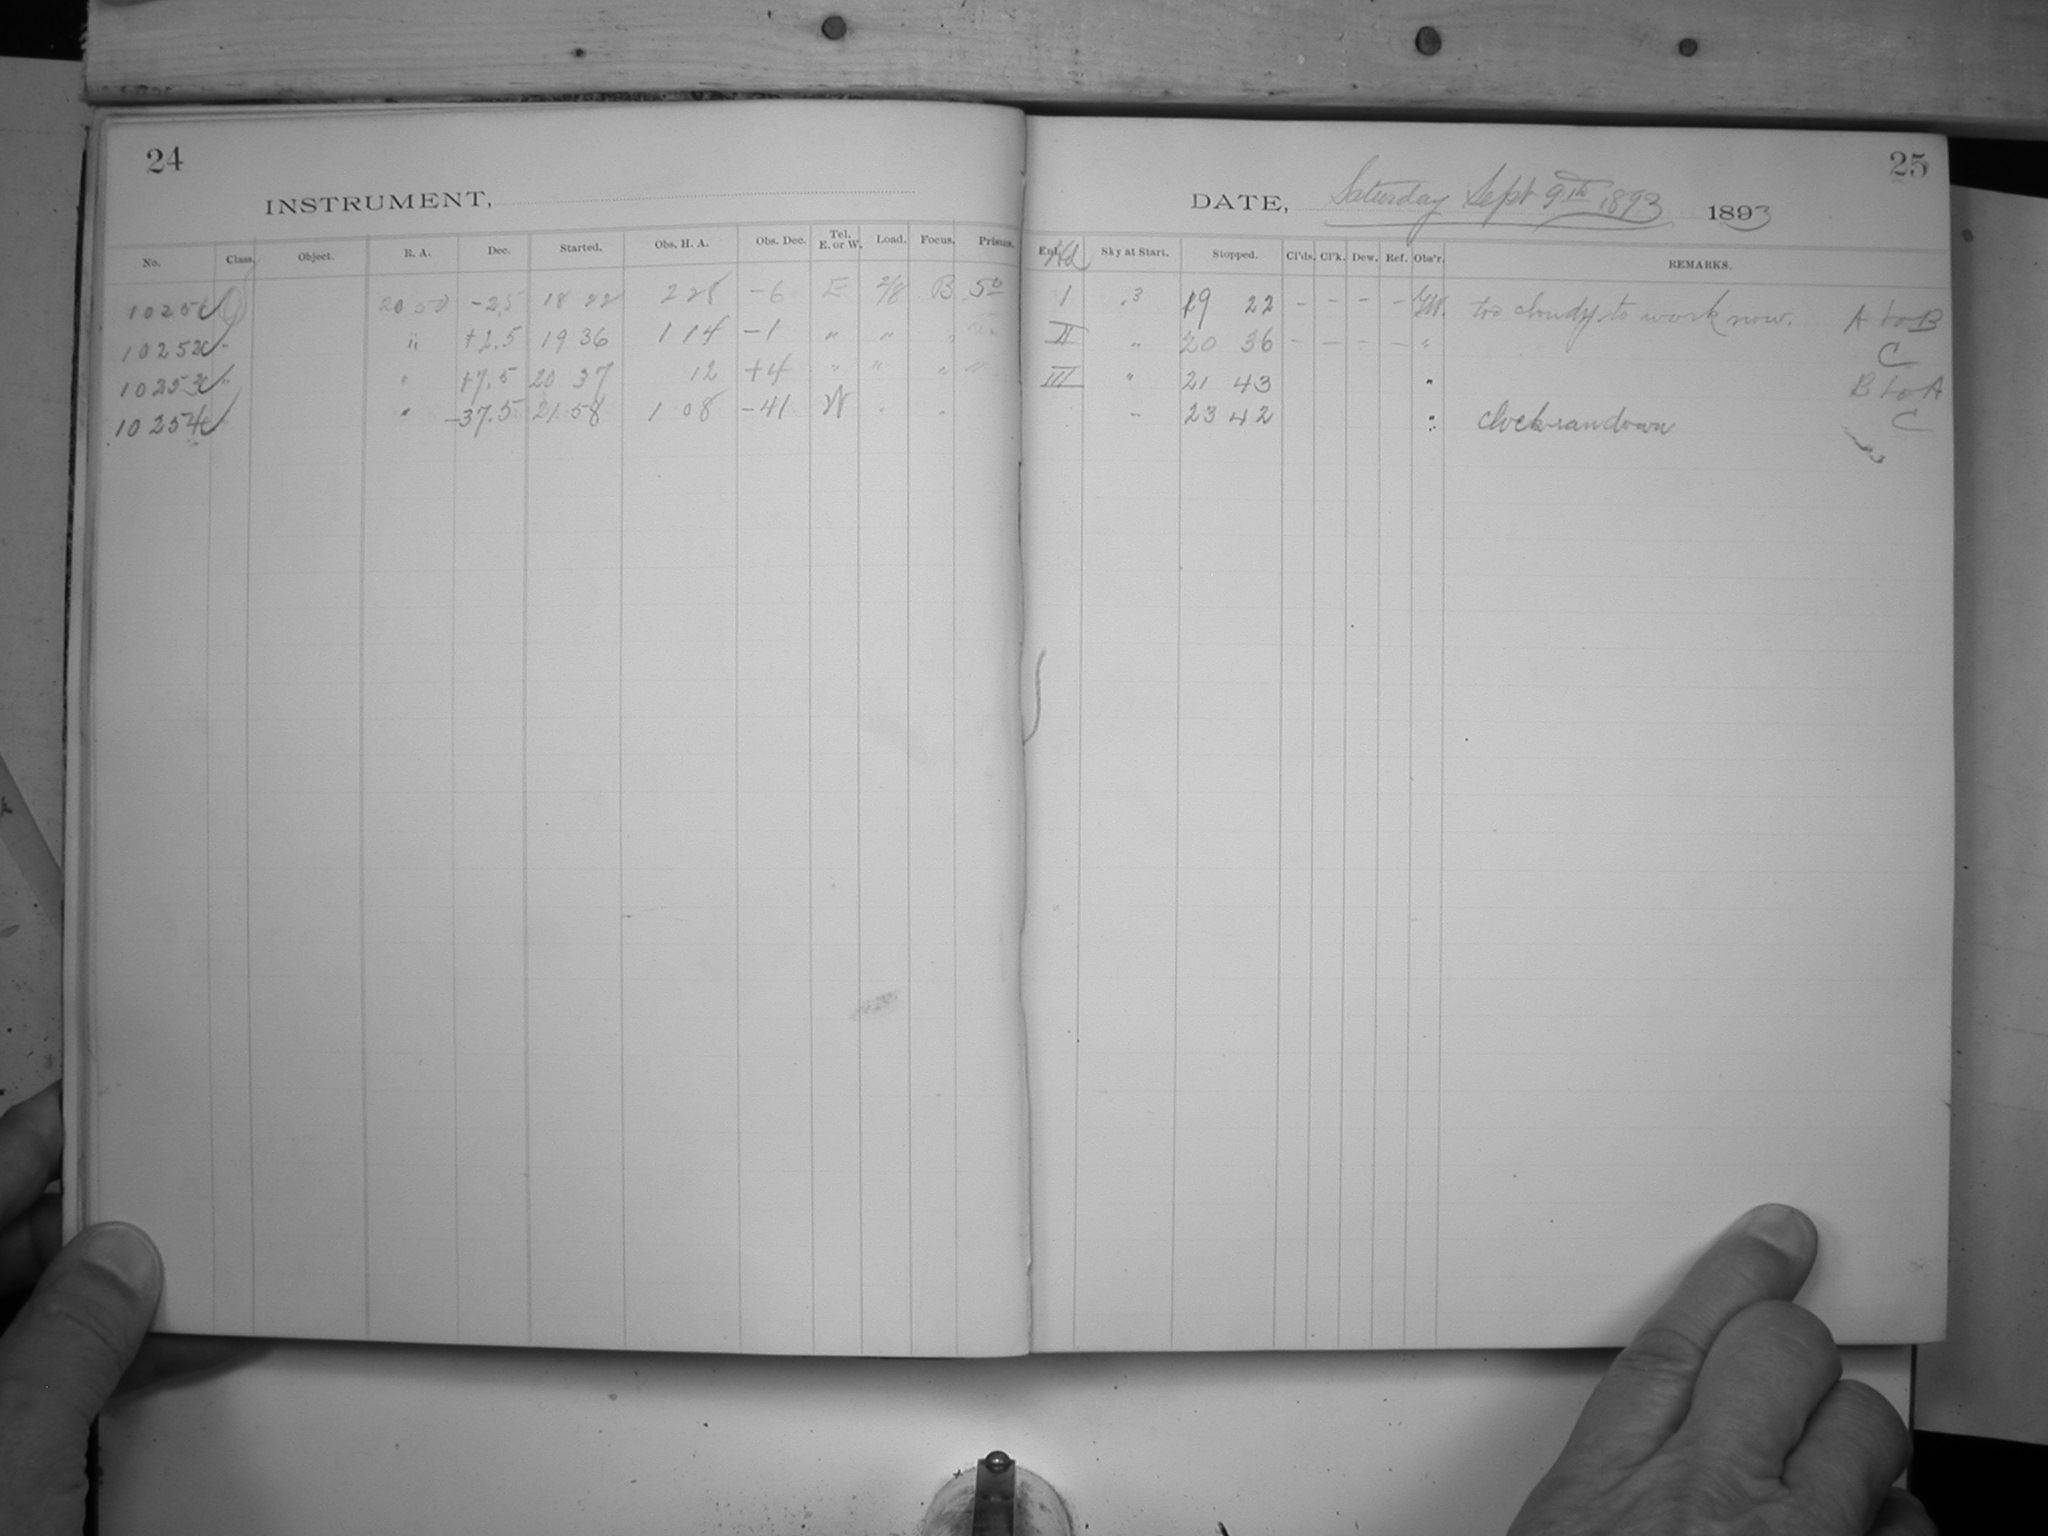 24
INSTRUMENT,
No. Class. Object. R. A. Dec. Started. Obs. H. A. Obs. Dec. Tel. E. or W. Load. Focus. Prisms.
10251 20 50 -2.5 18 22 2 28 -6 E 2/8 B 50
10252 " " +2.5 19 36 1 14 -1 " " " "
10253 " " +7.5 20 37 12 +4 " " " "
10254 " " -37.5 21 58 1 08 -41 W " "
25
DATE, Saturday Sept 9th 1893 1893
Sky at Start. Stopped. Cl'ds. Cl'k. Dew. Ref. Obs'r. REMARKS.
I .3 19 22 - - - - too cloudy to work now. A to B
II " 20 36 - - - - " C
III " 21 43 " B to A
- 23 42 " clock ran down C